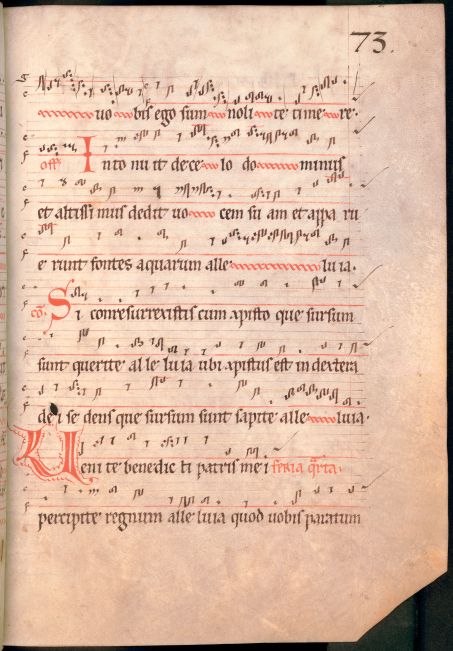 73.
uo bis ego sum noli te time re.
off Intonuit de ce lo do minus
et altissimus dedit uo cem su am et appa ru
e runt fontes aquarum alle luia.
cō Si conresurrexistis cum xpisto que sursum
sunt querite al le luia ubi xpistus est in dextera
de i se dens que sursum sunt sapite alle luia.
Ueni te benedic ti patris me i feria
percipite regnum alle luia quod uobis paratum